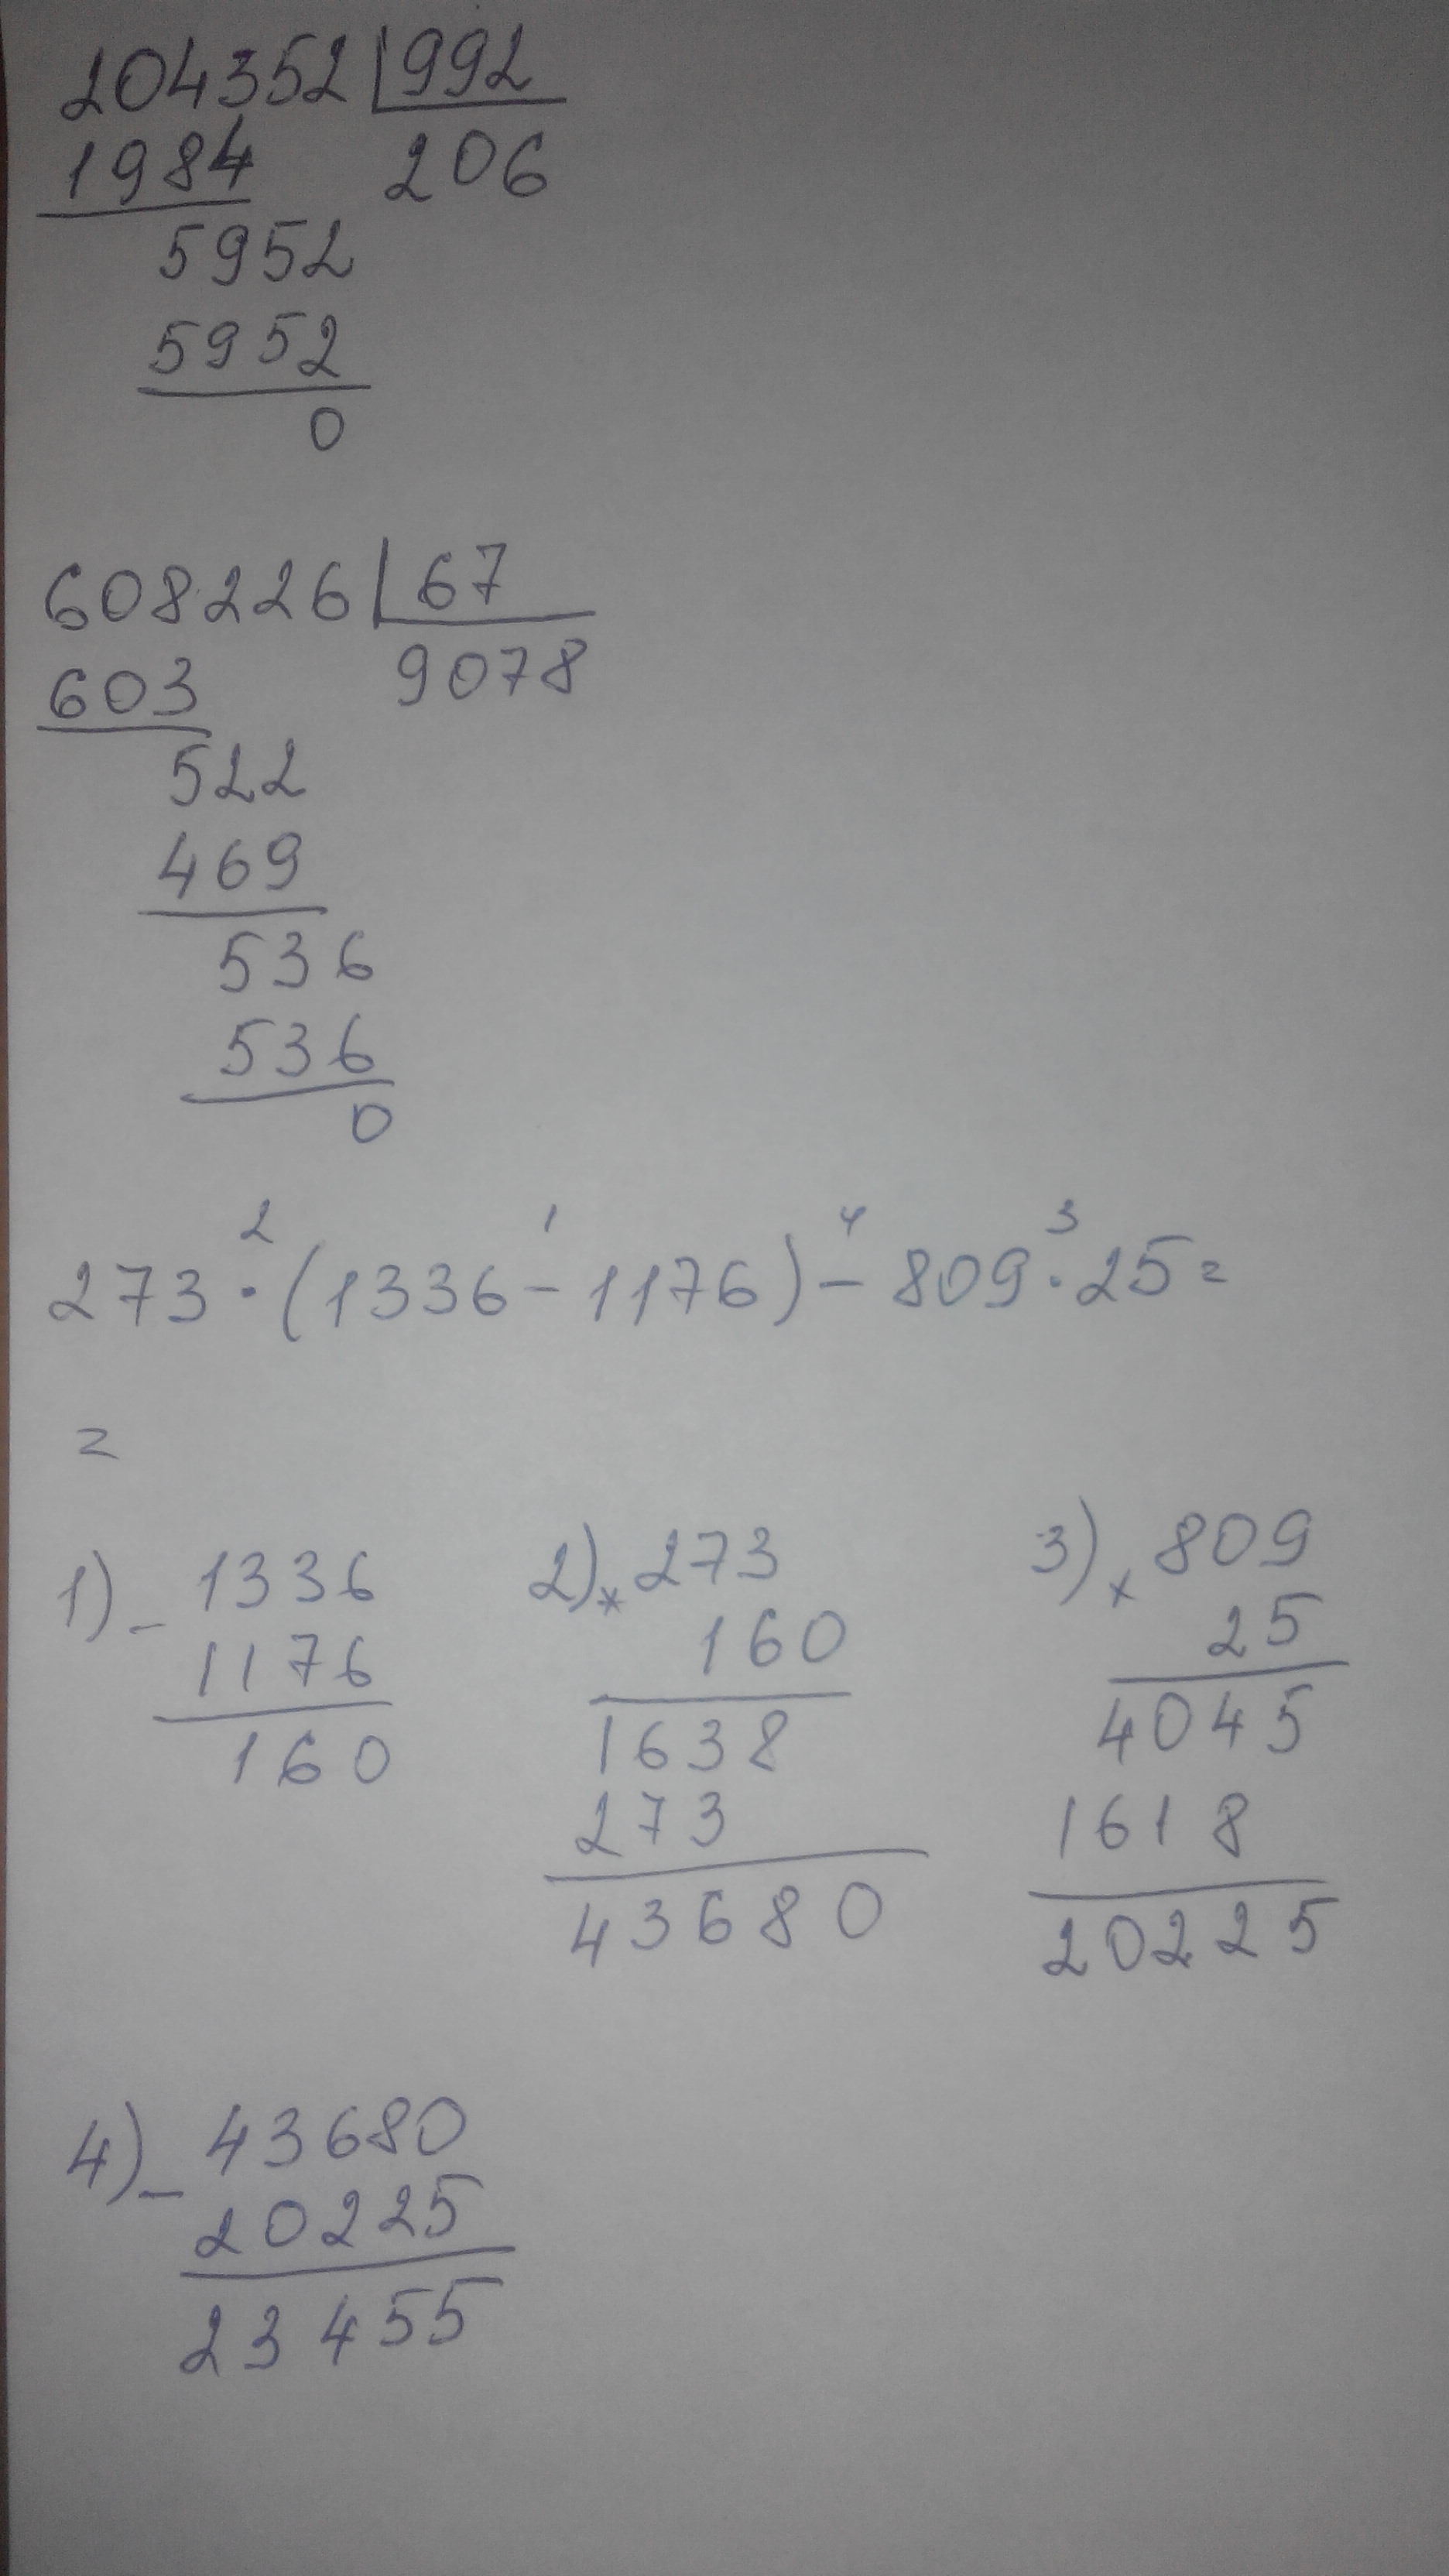 204352 | 992
1984 206
5952
5952
0
608226 | 67
603 9078
522
469
536
536
0
2 1 4 3
273 · (1336 - 1176) - 809 · 25 =
=
1) - 1336
1176
160
2) × 273
160
1638
273
43680
3) × 809
25
4045
1618
20225
4) - 43680
20225
23455